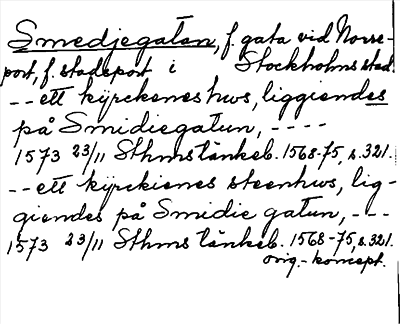 Smedjegatan, f. gata vid Norre-
port, f. stadsport i Stockholms stad.
-- ett kyrckenes hws, liggiendes
på Smidiegatun, ----
1573 23/11 Sthms tänkeb. 1568-75, s. 321.
-- ett kyrckienes steenhws, lig-
giendes på Smidie gatun, ---
1573 23/11 Sthms tänkeb. 1568-75, s. 321.
orig.-koncept.